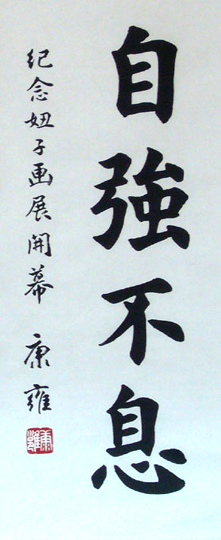 自強不息
紀念妞子画展開幕 康雍